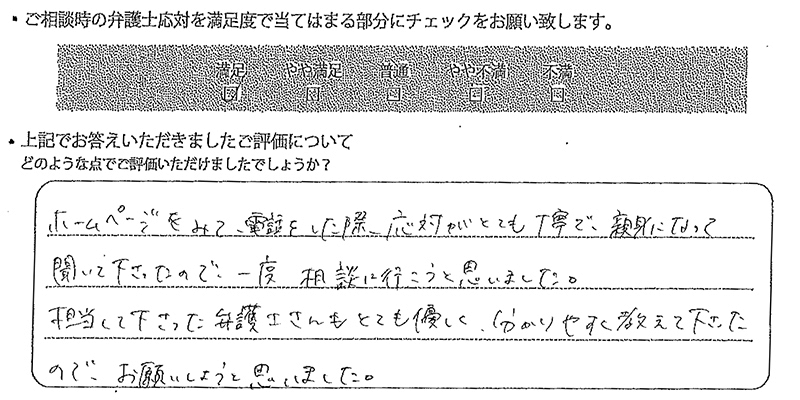 ・ご相談時の弁護士応対を満足度で当てはまる部分にチェックをお願い致します。
満足 やや満足 普通 やや不満 不満
・上記でお答えいただきましたご評価について
どのような点でご評価いただけましたでしょうか?
ホームページをみて、電話をした際、応対がとても丁寧で、親身になって
聞いて下さったので、一度 相談に行こうと思いました。
担当して下さった弁護士さんもとても優しく、分かりやすく教えて下さった
ので、お願いしようと思いました。